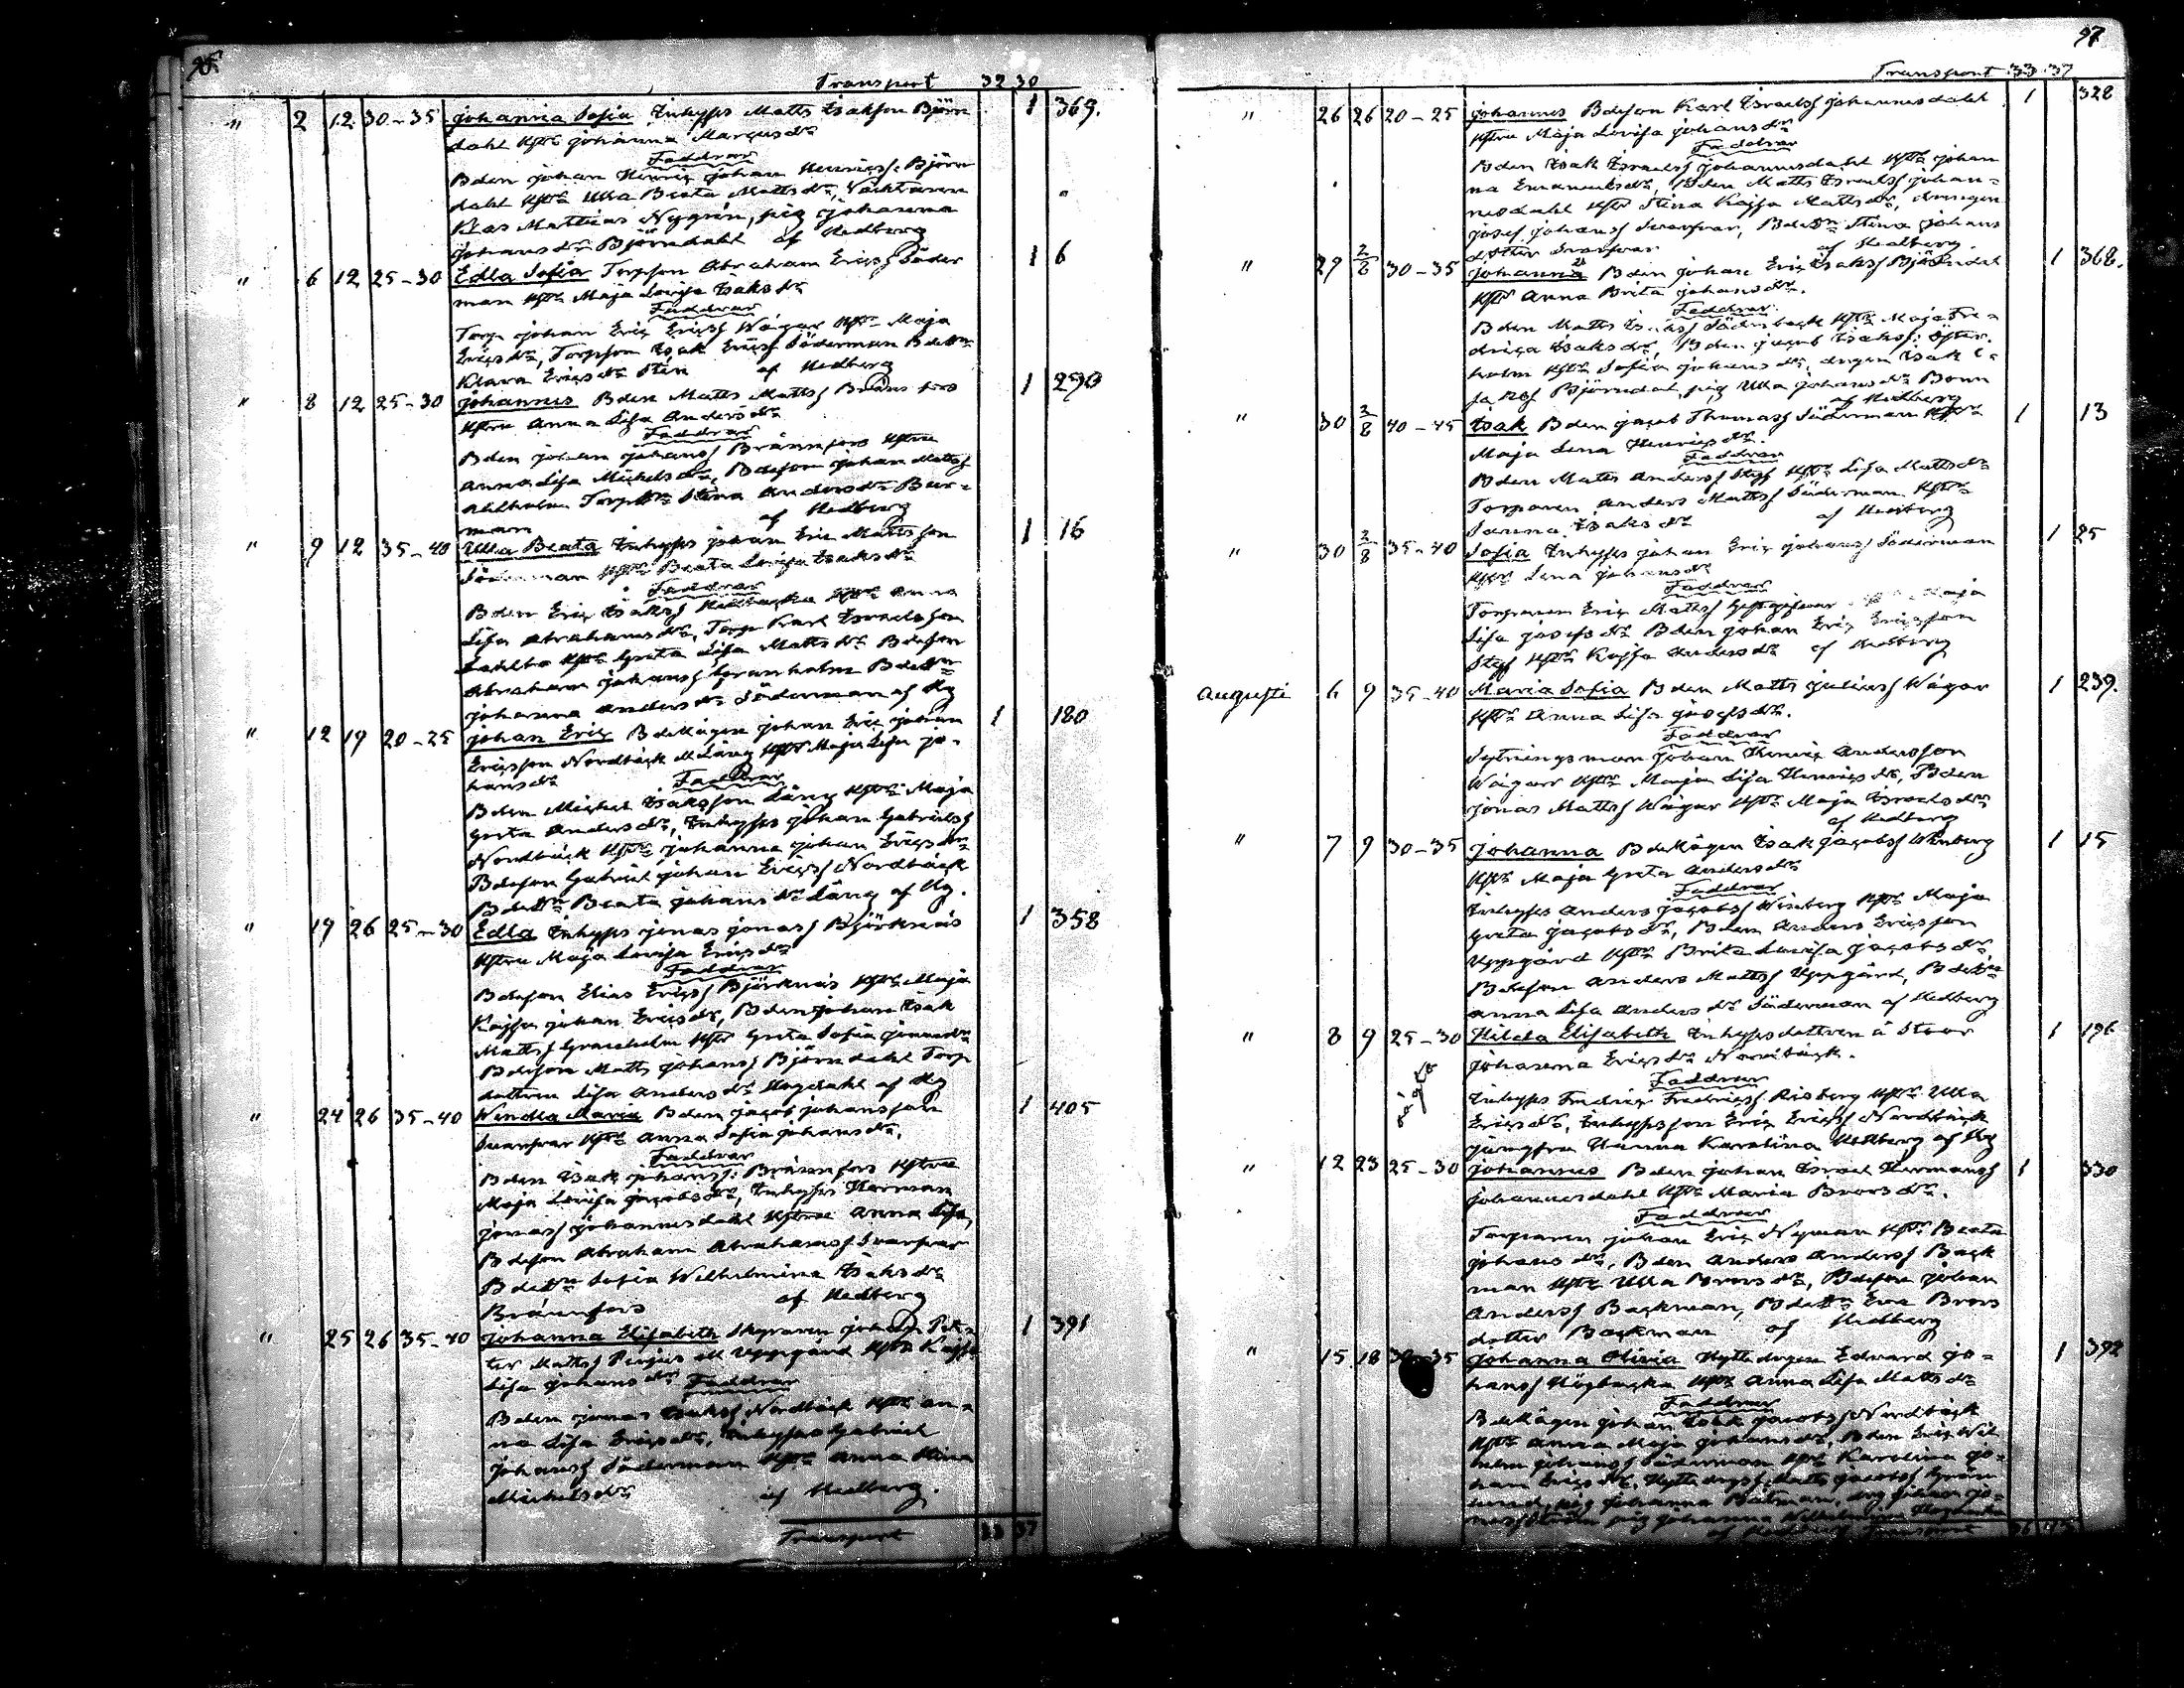 96.
Transport 32 30
" 2 12 30-35 Johanna Sofia Inhyses Matts Isakson Björn 1 369.
dahl Hstr Johanna Marcusdr
Faddrar
Bden Johan Henric Johan Henricss. Björn
dahl Hstr Ulla Beata Mattsdr, Vaktaren
Klas Mattias Nygrén, pig Johanna
Johansdr Björndahl af Hedberg
" 6 12 25-30 Edla Sofia Torpson Abraham Ericss Söder 1 6
man Hstr Maja Lovisa Isaksdr
Faddrar
Torp Johan Eric Ericss Wägar Hstr Maja
Ericsdr, Torpson Isak Ericss Söderman Bdettr
Klara Ericsdr Sten af Hedberg
" 8 12 25-30 Johannes Bden Matts Mattss Bränn fors 1 290
Hstru Anna Lisa Andersdr
Faddrar
Bden Johan Johanss Brännfors Hstru
Anna Lisa Mickelsdr, Bdeson Johan Mattss
Torpttr Stina Andersdr Bur-
man af Hedberg
" 9 12 35-40 Ulla Beata Inhyses Johan Eric Mattsson 1 16
Söderman Hstr Beata Lovisa Isaksdr
Faddrar
Bden Eric Isakss Hstr Anna
Lisa Abrahamsdr, Torp Karl Israelsson
Hstr Greta Lisa Mattsdr Bdeson
Abraham Johanss Granholm Bdettr
Johanna Andersdr Söderman af Hg
" 12 19 20-25 Johan Eric Bdemågen Johan Eric Johan 1 180
Ericsson Nordbäck Läng Hstr Maja Lisa Jo-
hansdr Faddrar
Bden Mickel Isaksson Läng Hstr Maja
Greta Andersdr, Inhyses Johan Gabrielss
Nordbäck Hstr Johanna Johan Ericsdr
Bdeson Gabriel Johan Ericss Nordbäck
Bdettr Beata Johansdr Läng af Hg.
" 19 26 25-30 Edla Inhyses Jonas Jonass Björknäs 1 358
Hstru Maja Lovisa Ericsdr
Faddrar
Bdeson Elias Ericss Björknäs Hstr Maja
Kajsa Johan Ericsdr, Bden Johan Isak
Mattss Granholm Hstr Greta Sofia Jonasdr
Bdeson Matts Johanss Björndahl Torp
dottren Lisa Andersdr Högdahl af Hg
" 24 26 35-40 Wendla Maria Bden Jacob Johansson 1 405
Svarfvar Hstr Anna Sofia Johansdr.
Faddrar
Bden Isak Johanss. Brännfors Hstru
Maja Lovisa Jacobsdr, Inhyses Herman
Jonass Johannesdahl Hstru Anna Lisa,
Bdeson Abraham Abrahamss Svarfvar
Bdettr Sofia Wilhelmina Isaksdr
Brännfors af Hedberg
" 25 26 35-40 Johanna Elisabeth Skepparen Johan Pet- 1 391
ter Mattss Uppgård Hstr Kajsa
Lisa Johansdr Faddrar
Bden Jonas Isakss Nordbäck Hstr An-
na Lisa Ericsdr, Inhyses Gabriel
Johanss Söderman Hstr Anna Stina
Mickelsdr af Hedberg.
Transport 33 37
97
Transport 33 37
" 26 26 20-25 Johannes Bdeson Karl Israelss Johannesdahl 1 328
Hstru Maja Lovisa Johansdr
Faddrar
Bden Isak Israelss Johannesdahl Hstr Johan
na Emanuelsdr, Bden Matts Israelss Johan-
nesdahl Hstr Stina Kajsa Mattsdr, drengen
Josef Johanss Svarfvar, Bdettr Stina Johans
dotter Svarfvar af Hedberg.
" 29 2/8 30-35 Johanna Bden Johan Eric Isakss Björndal 1 368.
Hstr Anna Brita Johansdr.
Faddrar
Bden Matts Isakss Söderback Hstr Maja Fre-
drica Isaksdr, Bden Jacob Isakss. Öster-
holm Hstr Sofia Johansdr, drgen Isak I-
sakss Björndal, pig Ulla Johansdr Bonn
af Hedberg
" 30 2/8 40-45 Isak Bden Jacob Thomass Söderman Hstr 1 13
Maja Lena Henricsdr.
Faddrar
Bden Matts Anderss Steys Hstr Lisa Mattsdr
Torparen Anders Mattss Söderman Hstr
Sanna Isaksdr af Hedberg
" 30 2/8 35-40 Sofia Inhyses Johan Eric Johanss Söderman 1 25
Hstr Lena Johansdr
Faddrar
Torparen Eric Mattss Maja
Lisa Josefsdr Bden Johan Eric Ericsson
Steys Hstr Kajsa Andersdr af Hedberg
Augusti 6 9 35-40 Maria Sofia Bden Matts Juliuss Wägar 1 239.
Hstr Anna Lisa Josefsdr.
Faddrar
Sytningsman Johan Henric Andersson
Wägar Hstr Maja Lisa Henricsdr, Bden
Jonas Mattss Wägar Hstr Maja Israelsdr
af Hedberg
" 7 9 30-35 Johanna Bdemågen Isak Jacobss Winberg 1 15
Hstr Maja Greta Andersdr
Faddrar
Inhyses Anders Jacobss Winberg Hstr Maja
Greta Jacobsdr, Bden Anders Ericsson
Uppgård Hstr Brita Lovisa Jacobsdr
Bdeson Anders Mattss Uppgård, Bdettr
Anna Lisa Andersdr Söderman af Hedberg
" 8 9 25-30 Hilda Elisabeth Inhysesdottren ä Stoor 1 196
oägta
Johanna Ericsdr Nordbäck.
Faddrar
Inhyses Fredric Fredricss Risberg Hstr Ulla
Ericsdr, Inhysesson Eric Ericss Nordbäck
Jungfru Hanna Karolina Hedberg af Hg
" 12 23 25-30 Johannes Bden Johan Israel Hermanss 1 330
Johannesdahl Hstr Maria Brorsdr.
Faddrar
Torparen Johan Eric Nyman Hstr Beata
Johansdr, Bden Anders Anderss Back
man Hstr Ulla Brorsdr, Bdeson Johan
Anderss Backman, Bdettr Eva Brors
dotter Backman af Hedberg
" 15 18 30-35 Johanna Olivia Hyttedrgen Edvard Jo- 1 392
hanss Högbacka Hstr Anna Lisa Mattsdr
Faddrar
Bdemågen Johan Isak Jacobss Nordbäck
Hstr Anna Maja Johansdr, Bden Eric Wil
helm Johanss Söderman Hstr Karolina Jo-
han Ericsdr, Matts Jacobss
pig Johanna drg Johan Jo-
pig Johanna Wilhelmina
Transport